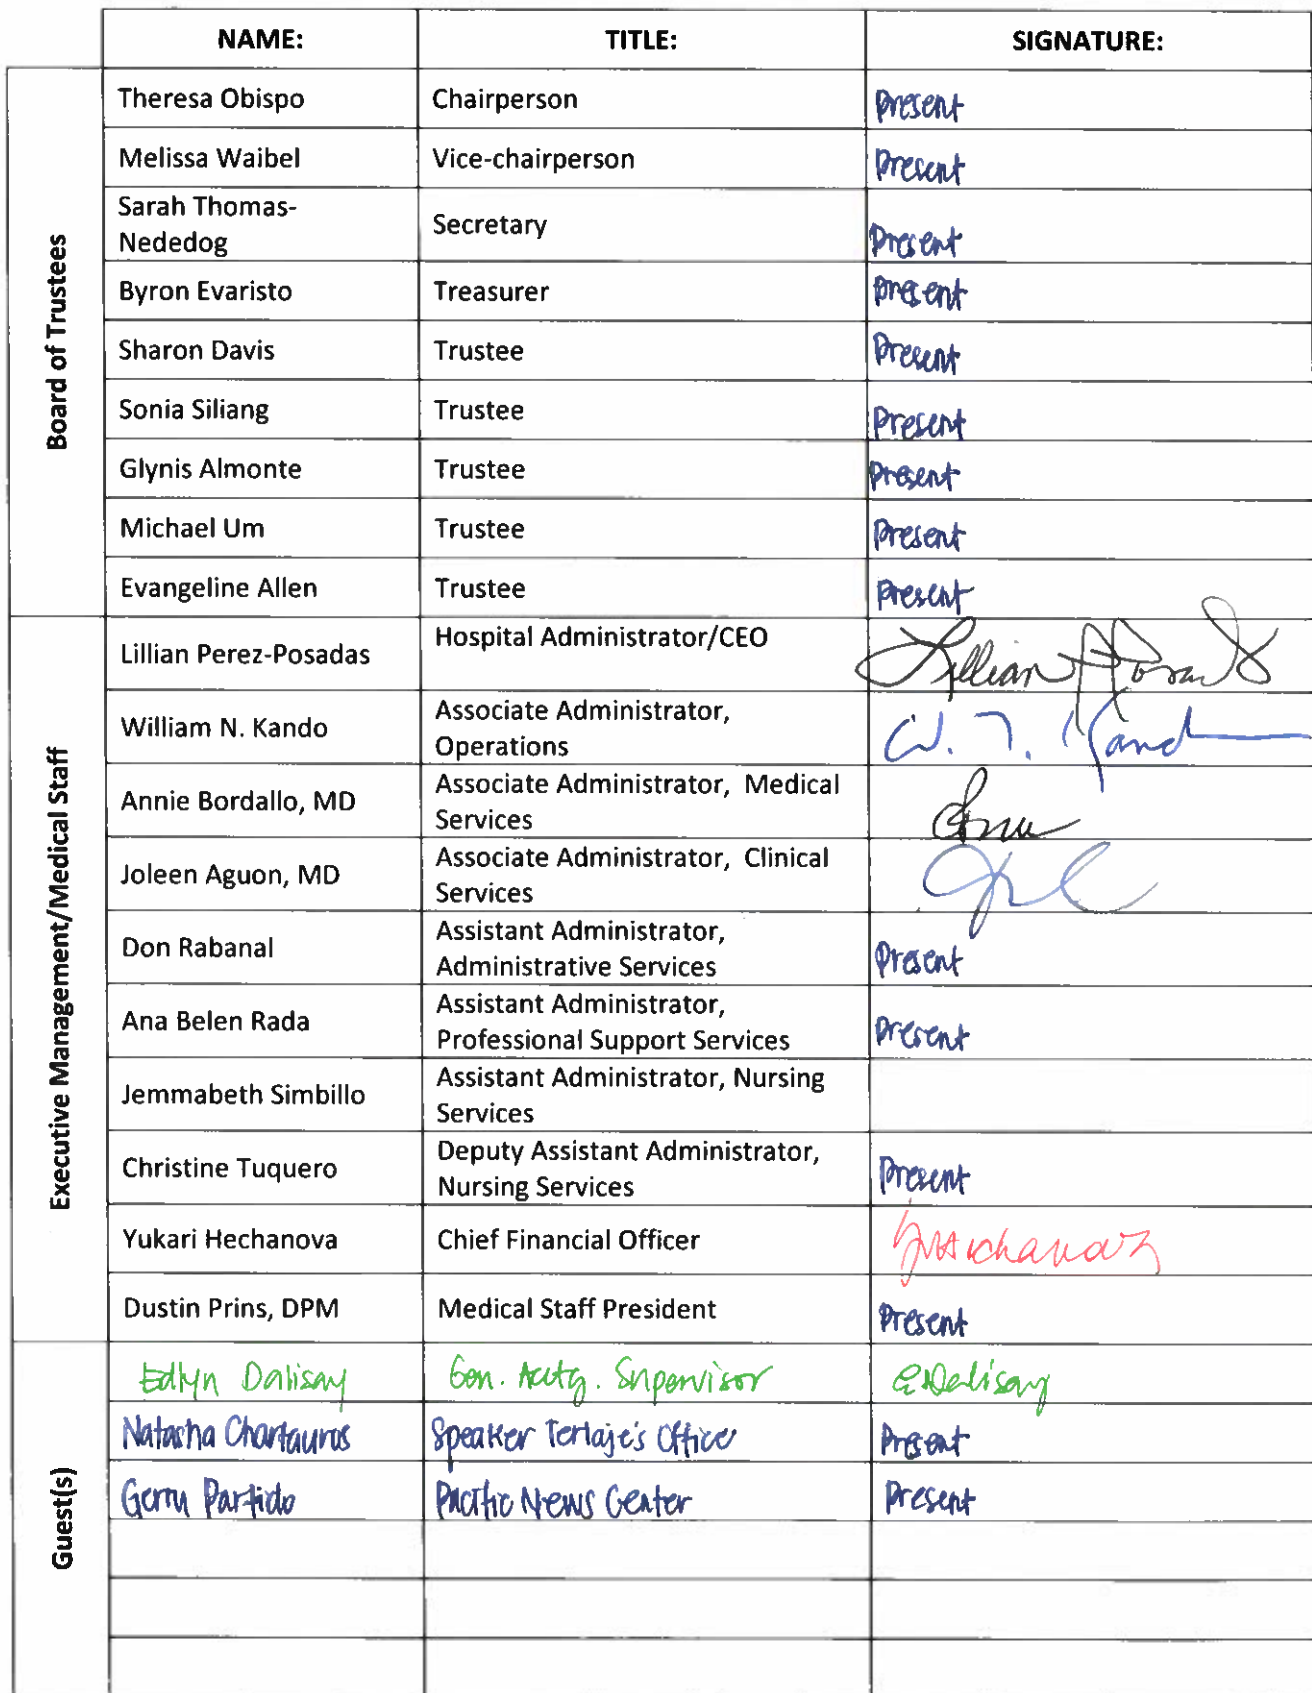 NAME: TITLE: SIGNATURE:
Board of Trustees
Theresa Obispo Chairperson Present
Melissa Waibel Vice-chairperson Present
Sarah Thomas-
Nededog Secretary Present
Byron Evaristo Treasurer Present
Sharon Davis Trustee Present
Sonia Siliang Trustee Present
Glynis Almonte Trustee Present
Michael Um Trustee Present
Evangeline Allen Trustee Present
Executive Management/Medical Staff
Lillian Perez-Posadas Hospital Administrator/CEO Lillian
William N. Kando Associate Administrator,
Operations
Annie Bordallo, MD Associate Administrator, Medical
Services
Joleen Aguon, MD Associate Administrator, Clinical
Services
Don Rabanal Assistant Administrator,
Administrative Services Present
Ana Belen Rada Assistant Administrator,
Professional Support Services Present
Jemmabeth Simbillo Assistant Administrator, Nursing
Services
Christine Tuquero Deputy Assistant Administrator,
Nursing Services Present
Yukari Hechanova Chief Financial Officer
Dustin Prins, DPM Medical Staff President Present
Guest(s)
Edlyn Dalisay Gen. Acctg. Supervisor EDalisay
Natasha Charfauros Speaker Terlaje's Office Present
Gerry Partido Pacific News Center Present